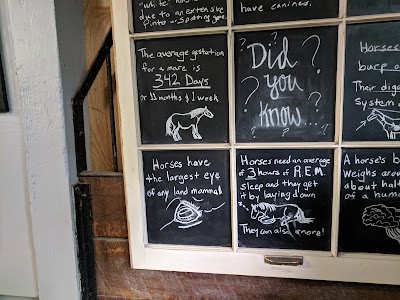 "white" ho
due to an extensive
Pinto or spotting gene.
have canines.
The average gestation
for a mare is
342 Days
or 11 months & 1 week
Did
you
know...
Horses
burp o
Their dige
System
Horses have
the largest eye
of any land mammal
Horses need an average
of 3 hours of R.E.M.
sleep and they get
it by laying down
They can also more!
A horse's b
Weighs aroun
about half
of a huma